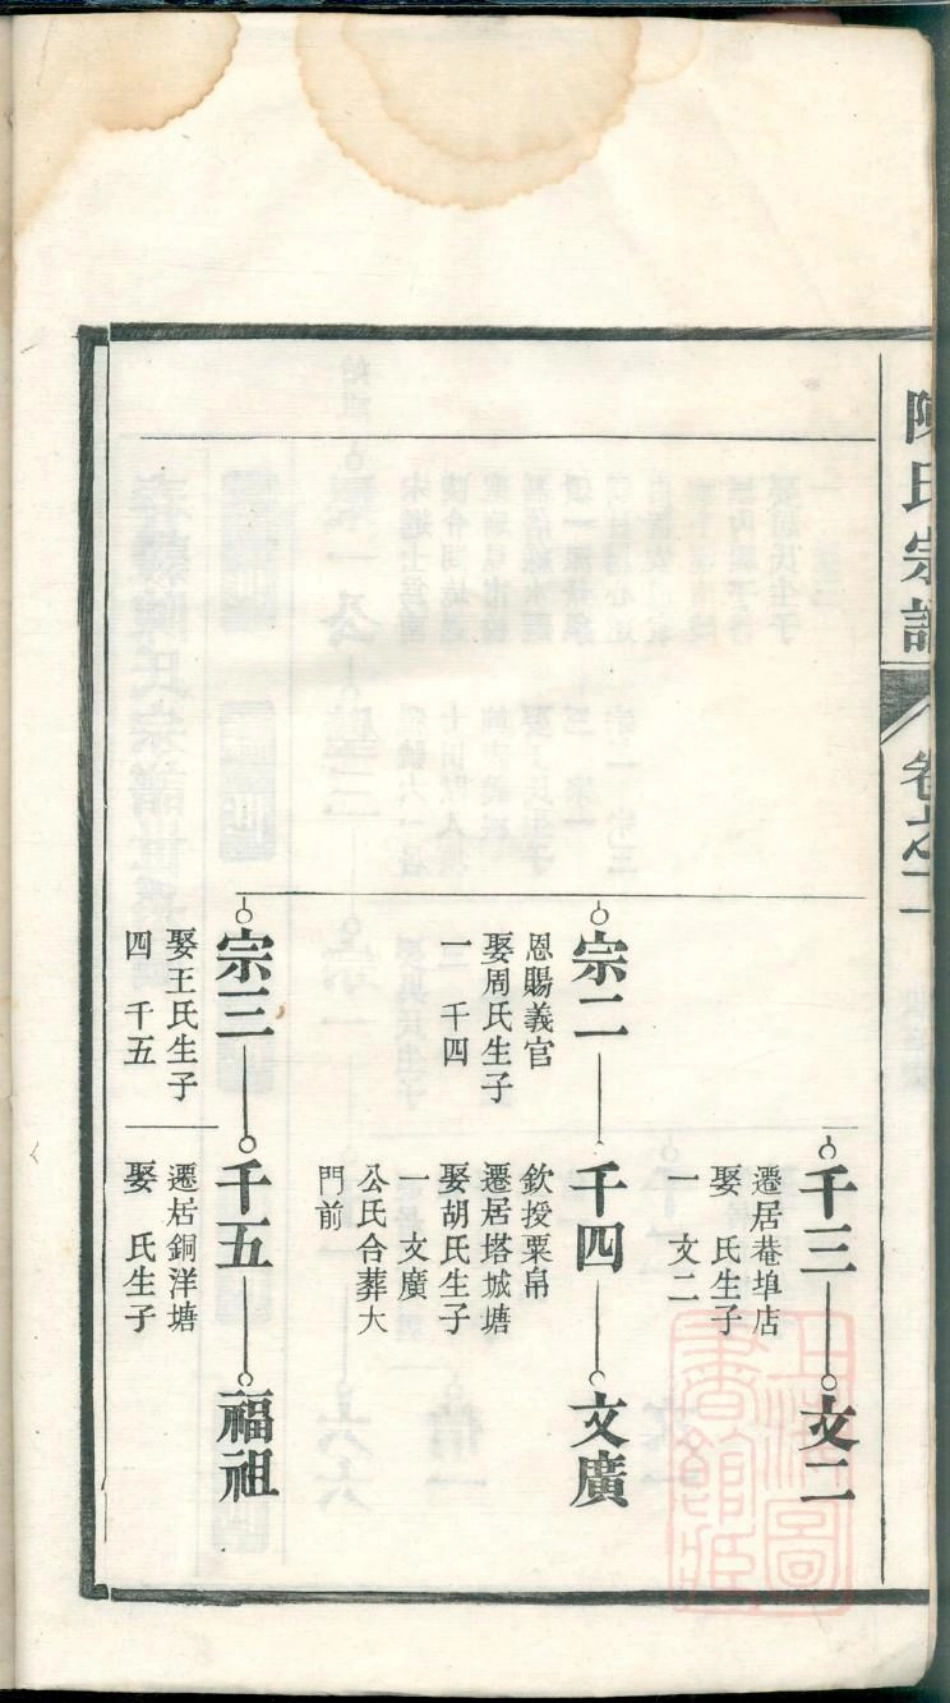 陳氏宗譜
卷之二
千三
遷居菴埠店
娶　氏生子
一　文二
文二
宗二
恩賜義官
娶周氏生子
一　千四
千四
欽授粟帛
遷居塔城塘
娶胡氏生子
一文廣
公氏合葬大
門前
文廣
宗三
娶王氏生子
四　千五
千五
遷居銅洋塘
娶　氏生子
福祖